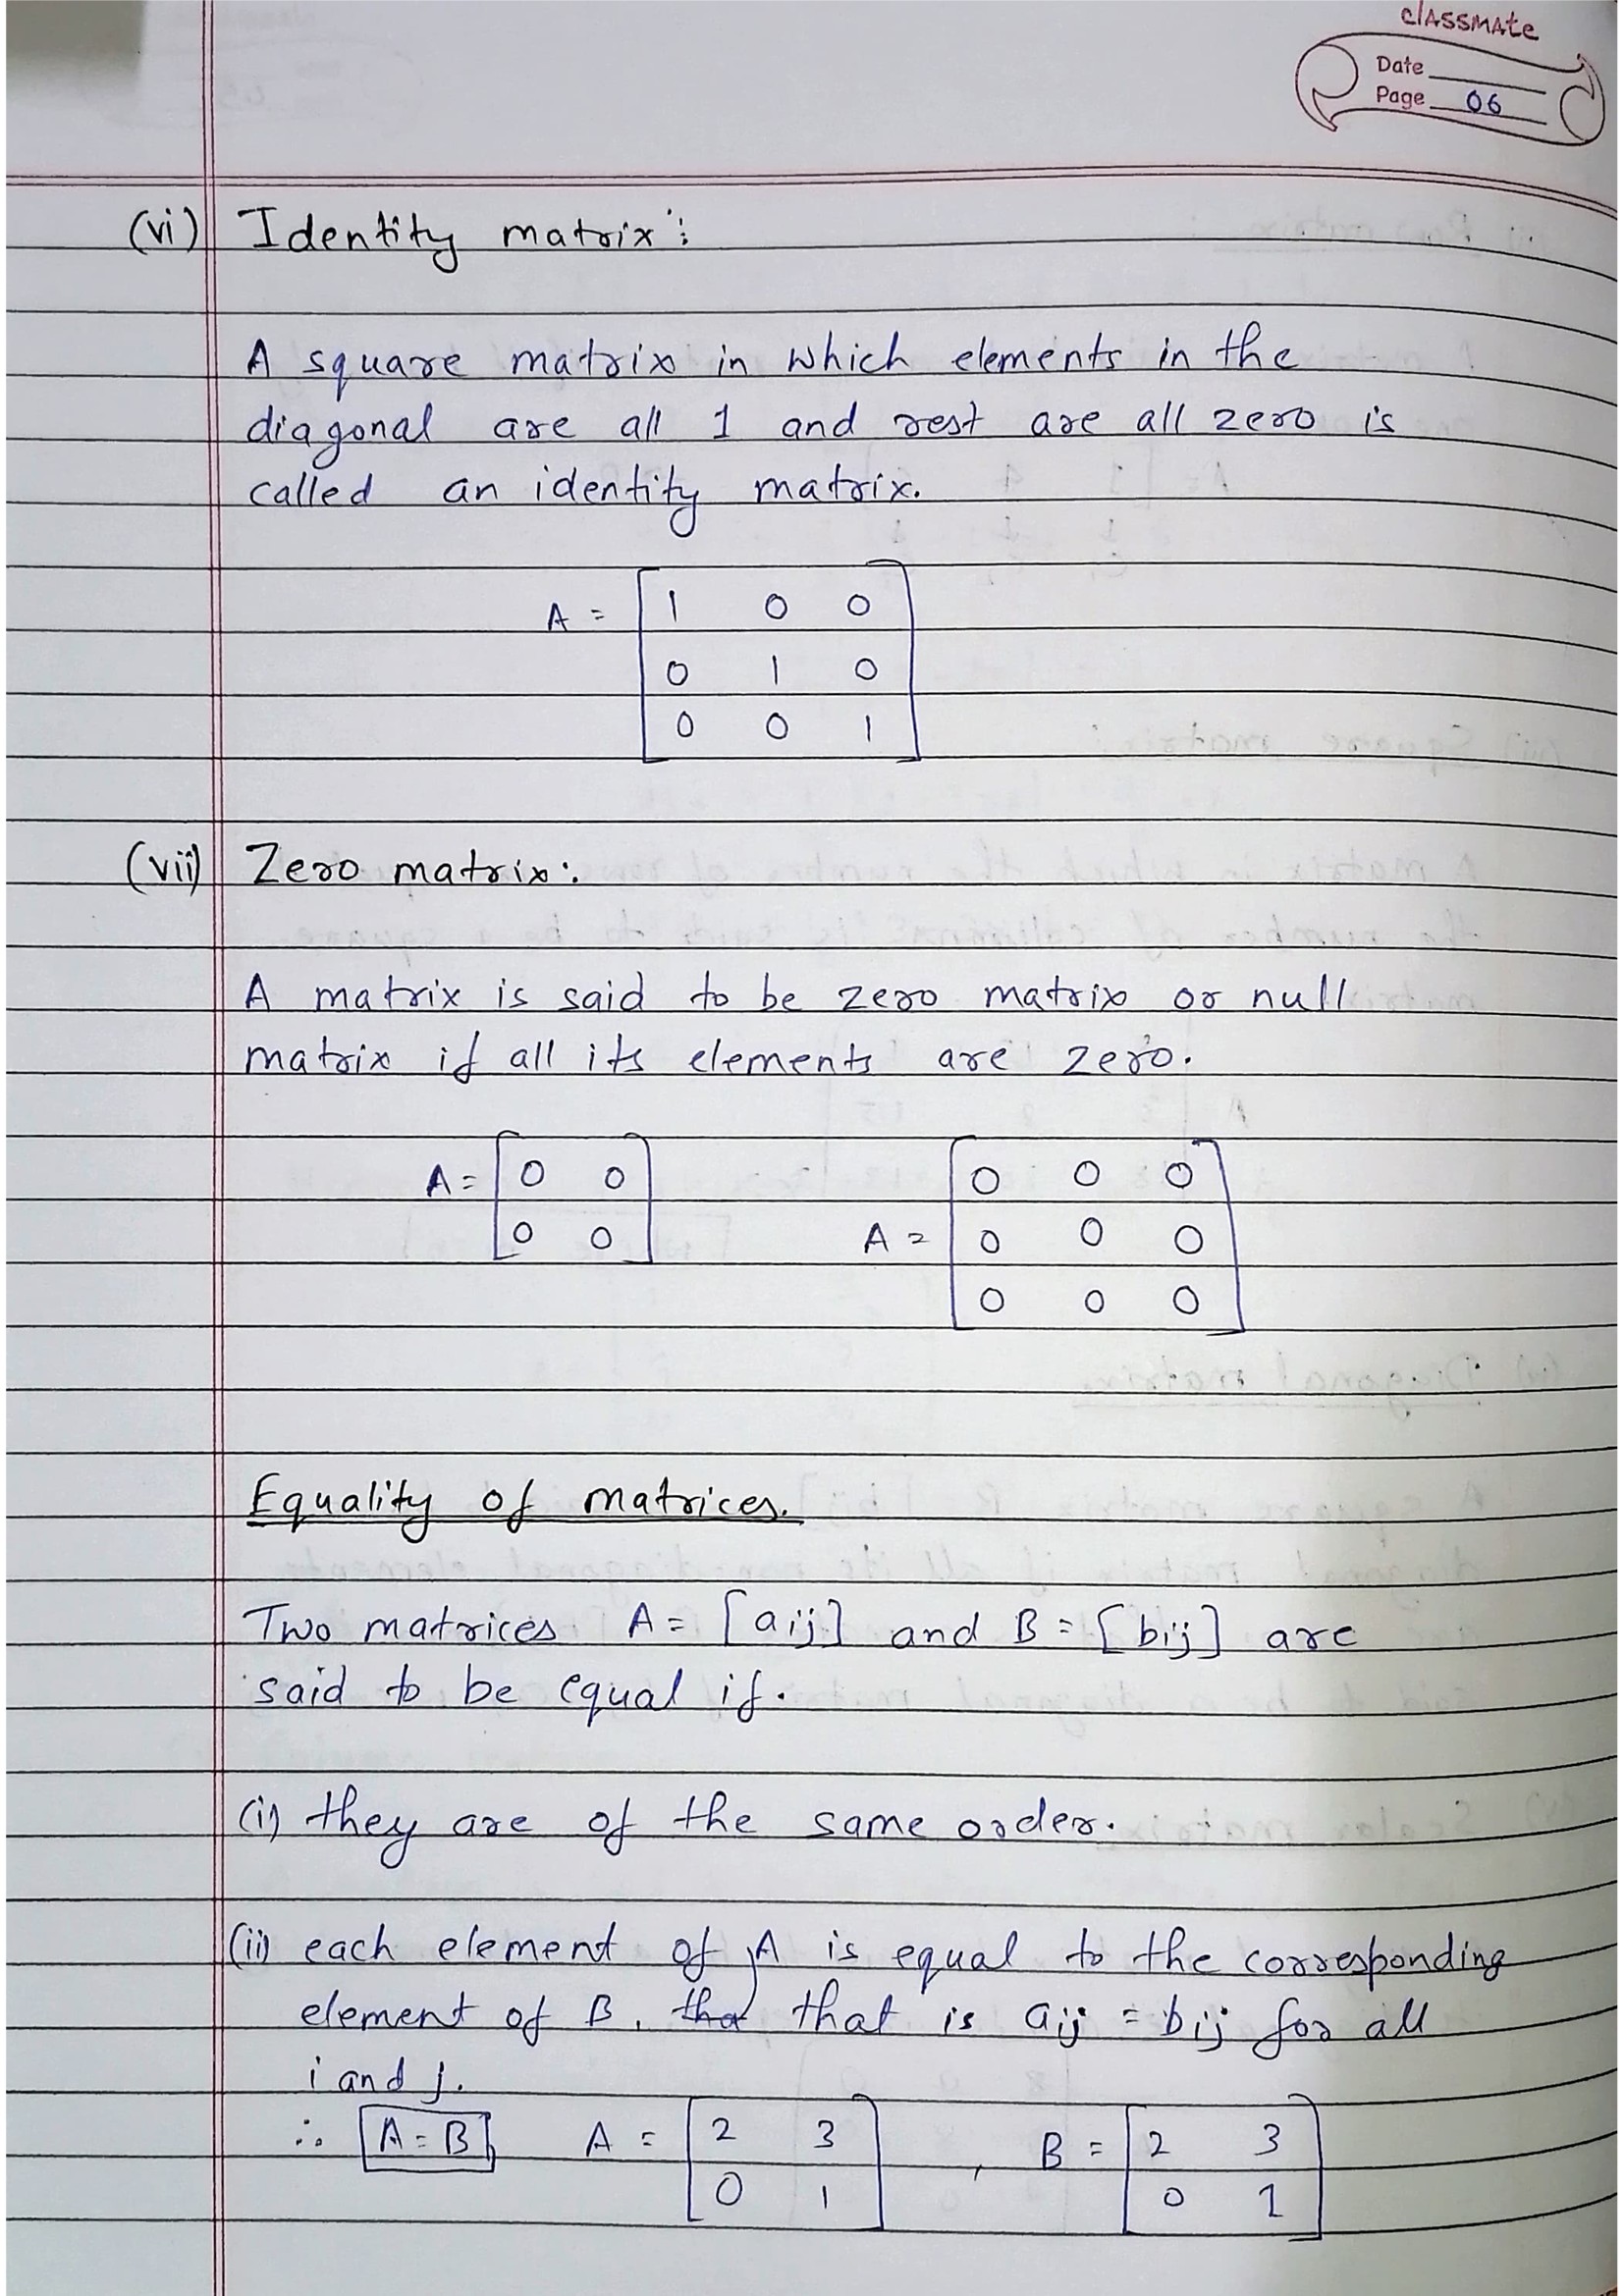 classmate
Date
Page 06
(vi) Identity matrix:
A square matrix in which elements in the
diagonal are all 1 and rest are all zero is
called an identity matrix.
A = [1 0 0
0 1 0
0 0 1]
(vii) Zero matrix:
A matrix is said to be zero matrix or null
matrix if all its elements are zero.
A = [0 0
0 0]
A = [0 0 0
0 0 0
0 0 0]
Equality of matrices.
Two matrices A = [aij] and B = [bij] are
said to be equal if.
(i) they are of the same order.
(ii) each element of A is equal to the corresponding
element of B, tha that is aij = bij for all
i and j.
∴ A = B A = [2 3 , B = [2 3
0 1] 0 1]